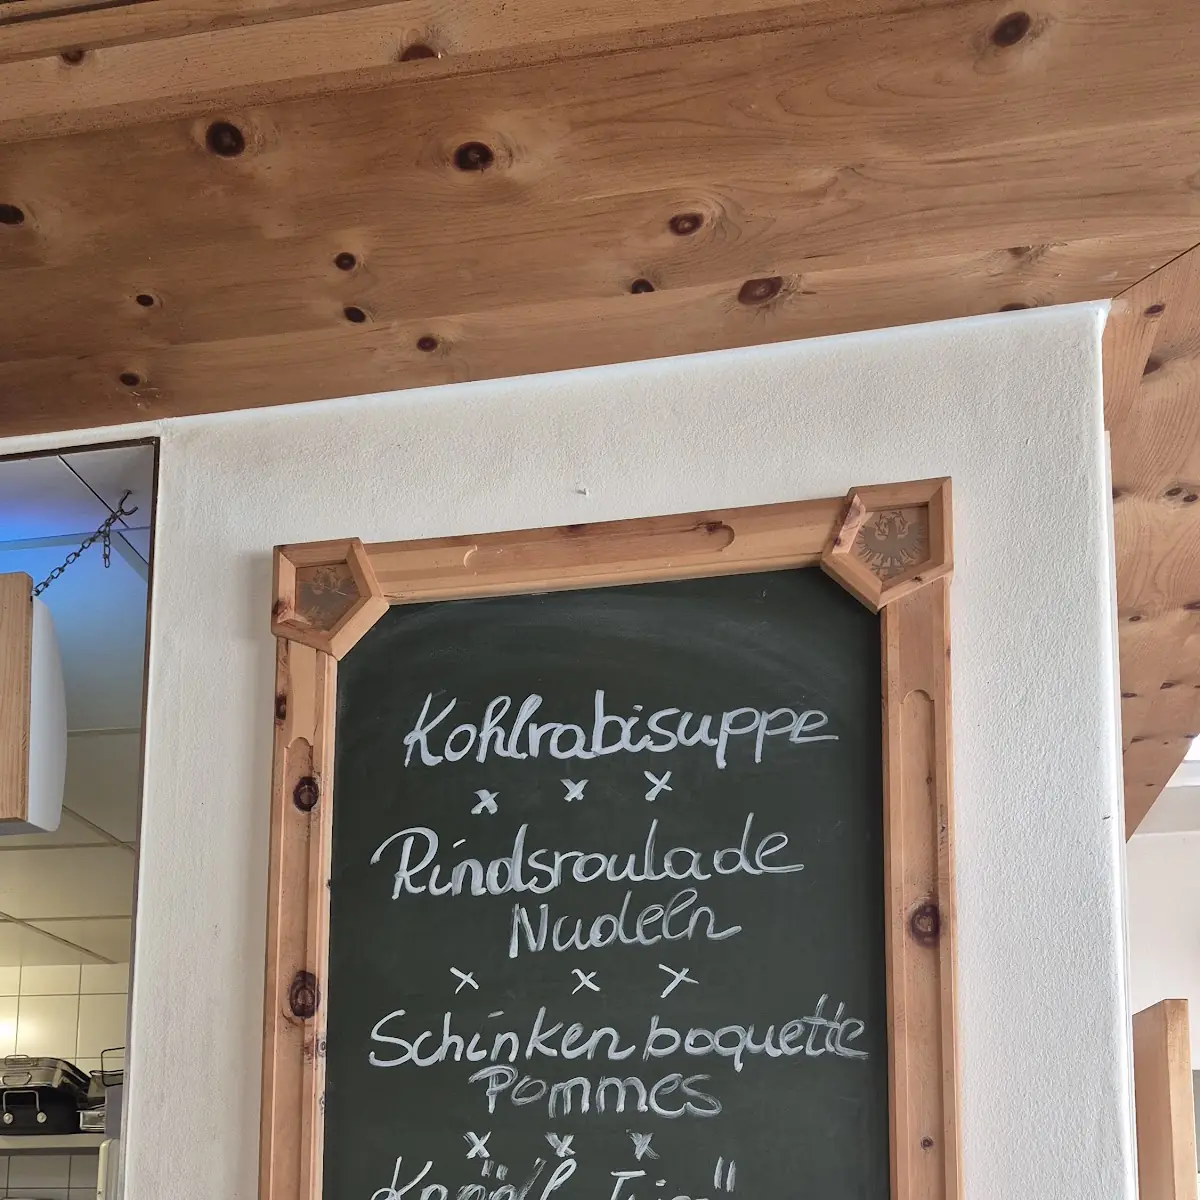 Kohlrabisuppe
x x x
Rindsroulade
Nudeln
x x x
Schinkenboquette
Pommes
x x x